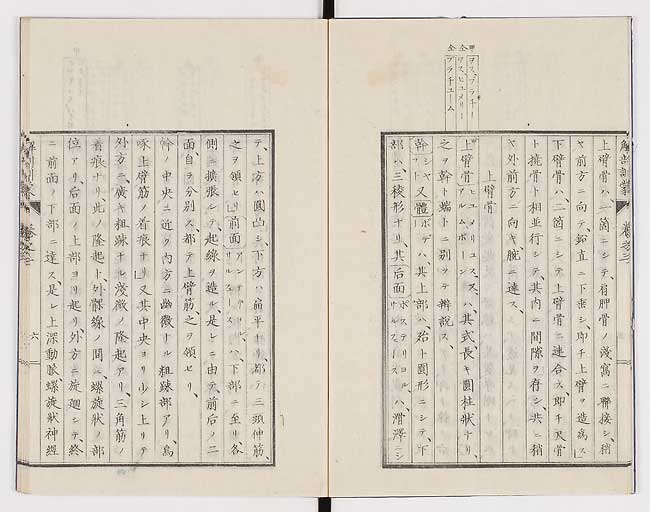 甲ヲス、ブラチー
仝ヲス、ヒユメリー
仝ブラチユーム
解剖訓蒙
巻之二
上臂骨ハ、一箇ニシテ、肩胛骨ノ淺窩ニ聯接シ、稍
ヤ前方ニ向テ鉛直ニ下垂シ、即チ上臂ヲ造爲ス、
下臂骨ハ、二箇ニシテ、上臂骨ニ連合ス、即チ尺骨
ト撓骨ト相並行シテ、其内ニ間隙ヲ存シ、共ニ稍
ヤ外前方ニ向キ、腕ニ達ス、
上臂骨
上臂骨ヒユメリユス、アルムボーンハ、其式長キ圓柱狀ナリ、
之ヲ幹ト端トニ別ヲテ辨說ス、
幹シヤフト又體ボデハ、其上部ハ、殆ト圓形ニシテ、下
部ハ三稜形ナリ、其后面ポステリヲル、サルフェースハ、滑澤ニシ
テ、上方ハ圓凸シ、下方ハ扁平ナリ、都テ三頭伸筋、
之ヲ領セリ、前面アンテリヲル、サルフェースハ、下部ニ至リ、各
側ニ擴張シテ、起線ヲ造ル、是レニ由テ、前后ノ二
面、自ラ分別ス、都テ上臂筋、之ヲ領セリ、
幹ノ中央ニ近ク、内方ニ幽微ナル粗跡部アリ、烏
啄上臂筋ノ着痕ナリ、又其中央ヨリ少シ上リテ
外方ニ、廣キ粗跡ナル淺微ノ隆起アリ、三角筋ノ
着痕ナリ、此ノ隆起ト、外髁線ノ間ニ、螺旋狀ノ部
位アリ、后面ノ上部ヨリ起リ、外方ニ旋廻シテ、終
ニ前面ノ下部ニ達ス、是レ上深動脈螺旋狀神經
六